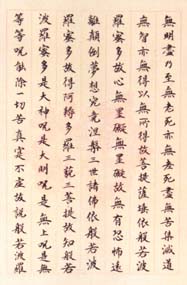 無明盡乃至無老死亦無老死盡無苦集滅道
無智亦無得以無所得故菩提薩埵依般若波
羅蜜多故心無罣礙無罣礙故無有恐怖遠
離顛倒夢想究竟涅槃三世諸佛依般若波
羅蜜多故得阿耨多羅三藐三菩提故知般若
波羅蜜多是大神呪是大明呪是無上呪是無
等等呪能除一切苦真實不虛故說般若波羅